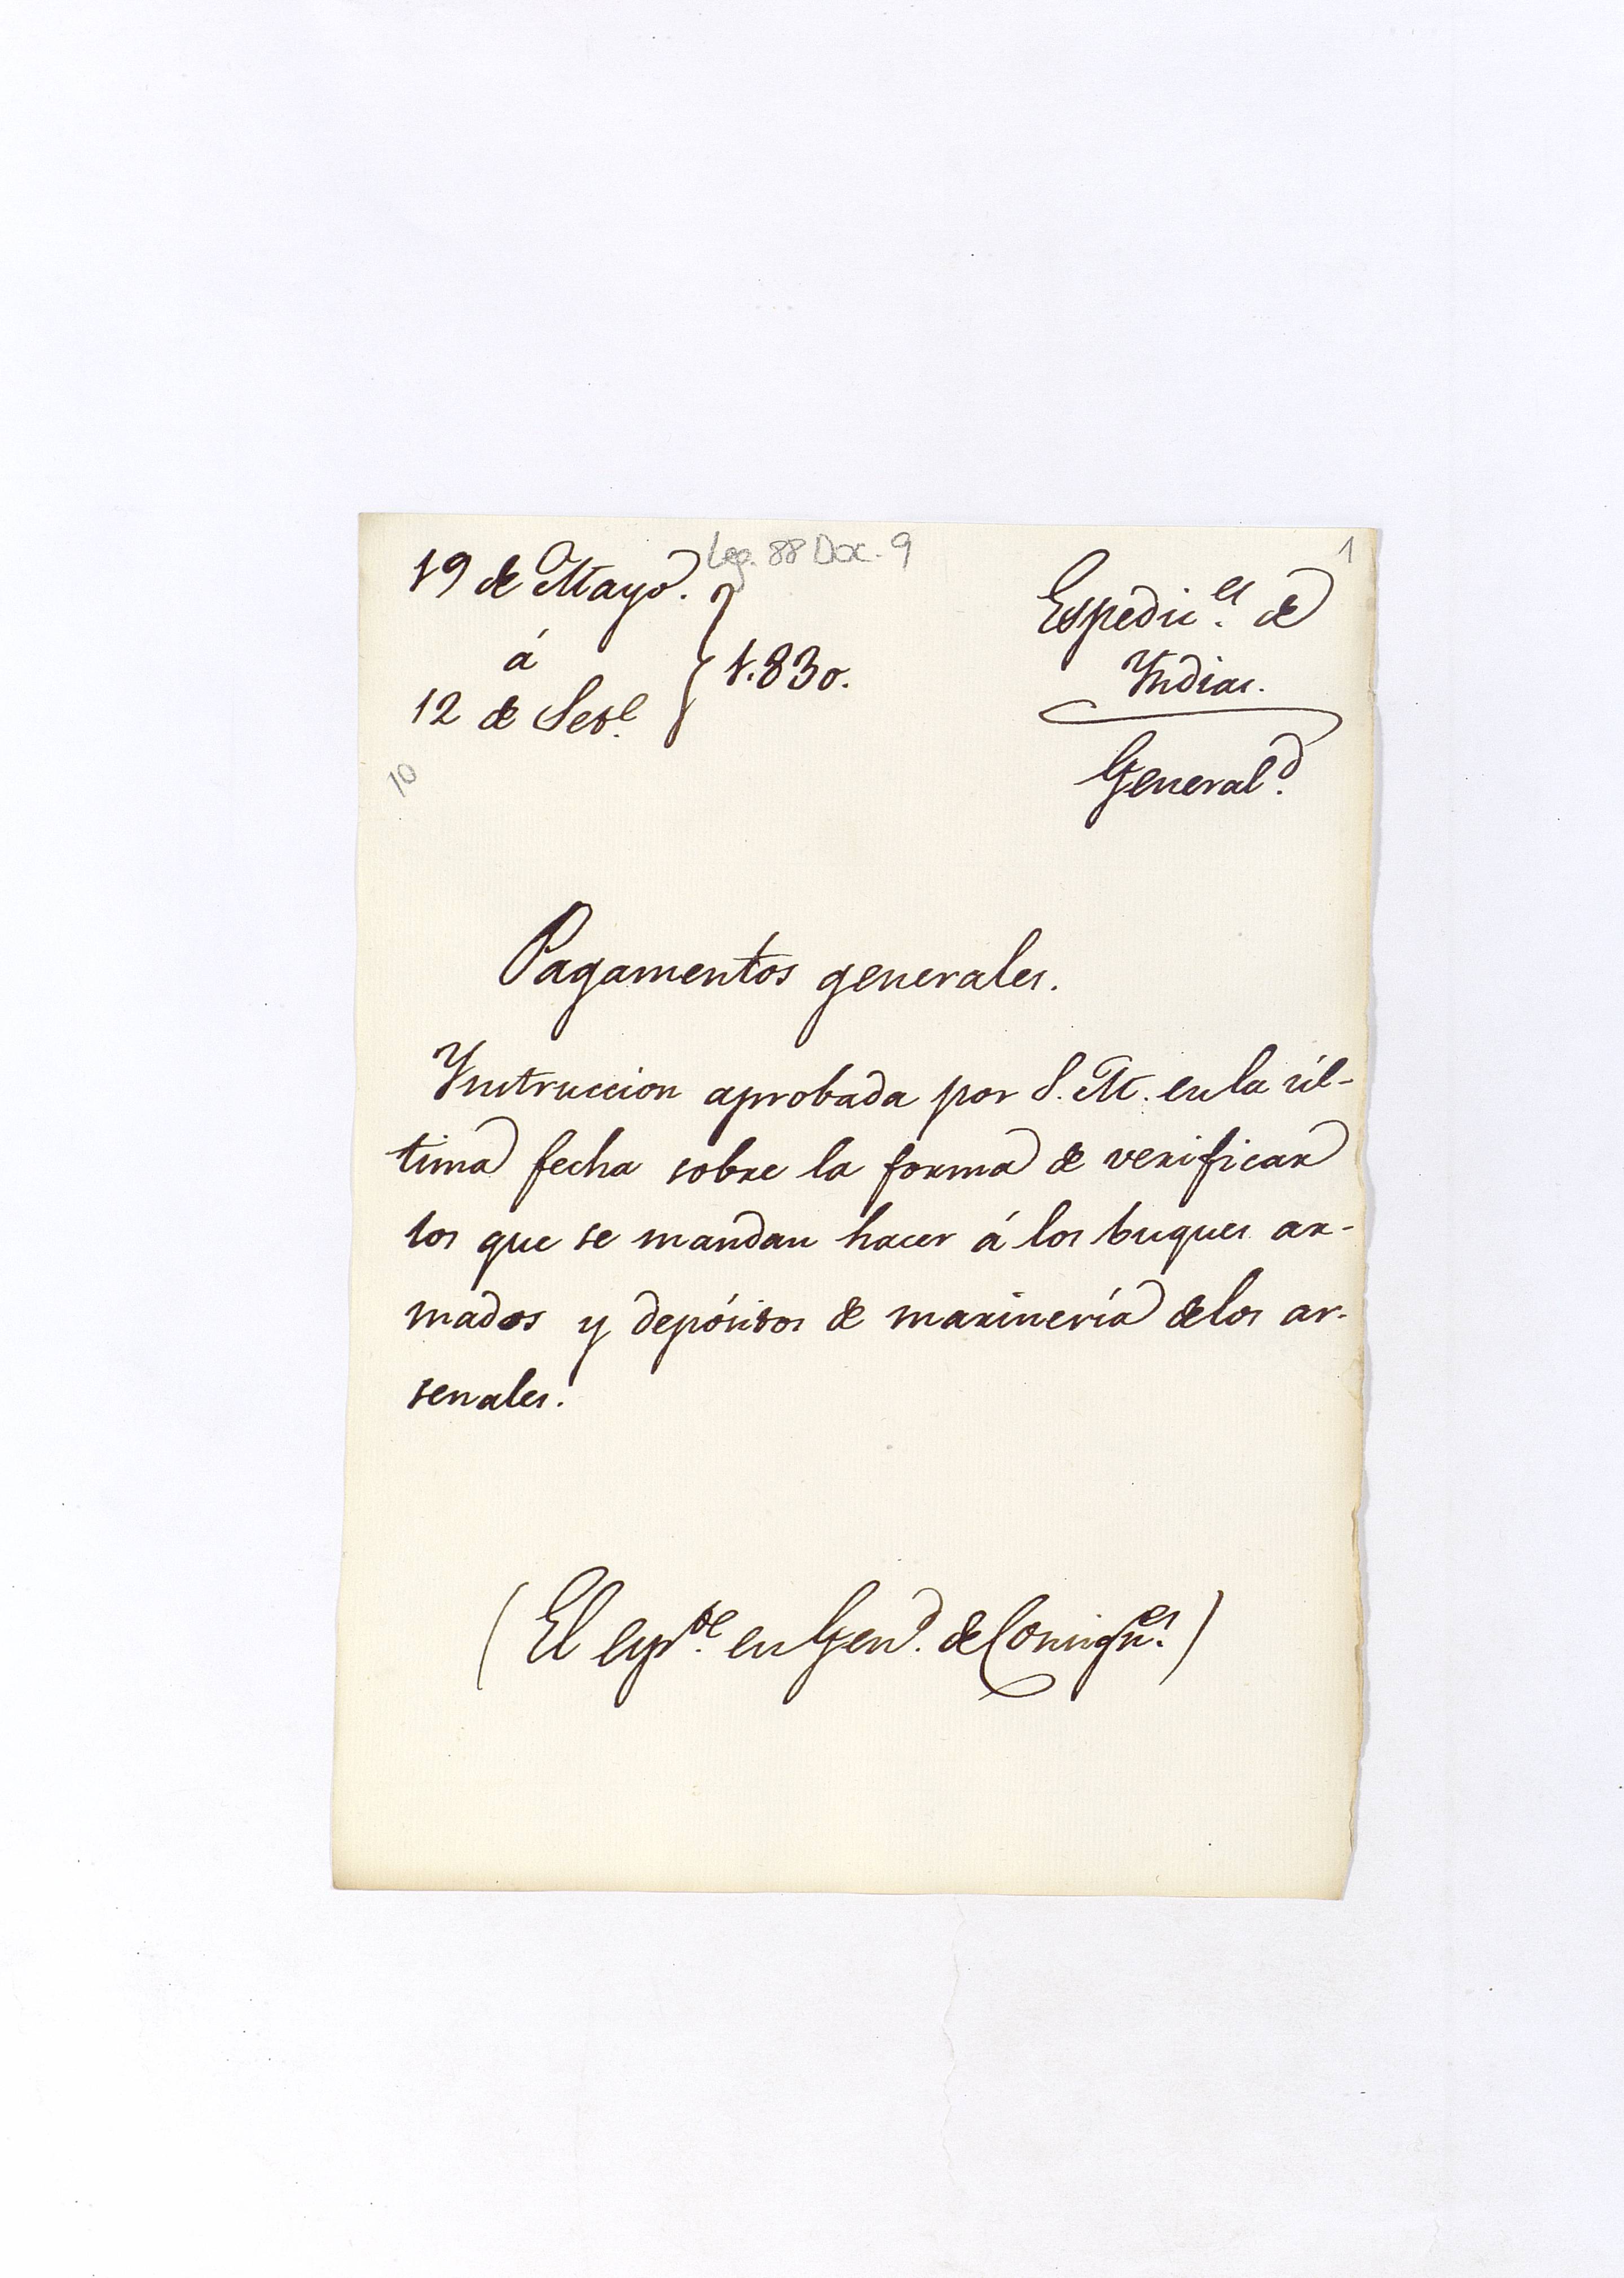 Leg. 88 Doc. 9
1
19 de Mayo.
á
12 de Set.e
1.830.
10
Espedic.es de
Yndias.
General.d
Pagamentos generales.
Ynstruccion aprobada por S. M. en la úl-
tima fecha sobre la forma de verificar
los que se mandan hacer á los buques ar-
mados y depósitos de marinería de los ar-
senales.
(El esp.te en Gen.d de Consign.es)